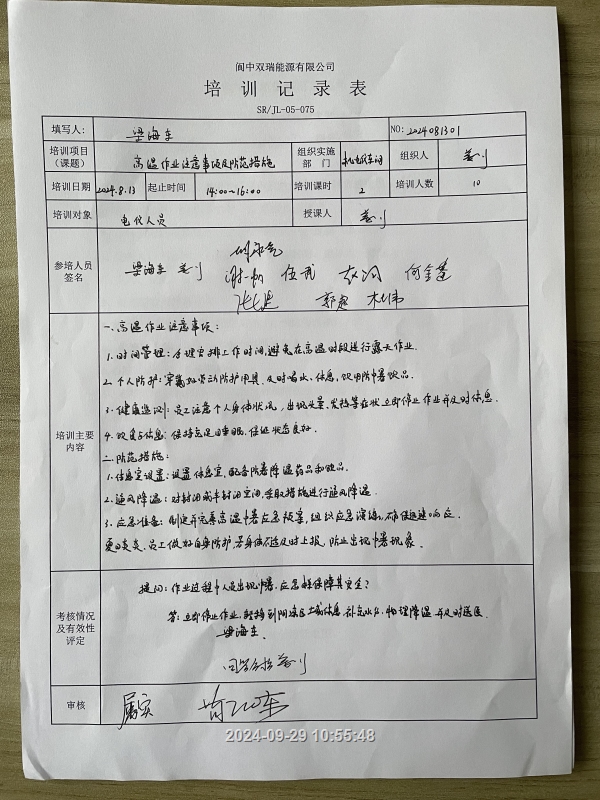 阆中双瑞能源有限公司
培训记录表
SR/JL-05-075
填写人： 梁海东 NO: 2024081301
培训项目（课题） 高温作业注意事项及防范措施 组织实施部门 机电仪车间 组织人
培训日期 2024.8.13 起止时间 14:00~16:00 培训课时 2 培训人数 10
培训对象 电仪人员 授课人
参培人员签名
梁海东 伍武 何金莲
郭磊
培训主要内容
一.高温作业注意事项：
1.时间管理：合理安排工作时间，避免在高温时段进行露天作业.
2.个人防护：穿戴好劳动防护用具，及时喝水、休息，饮用防中暑饮品.
3.健康监测：员工注意个人身体状况，出现头晕、发热等症状立即停止作业并及时休息.
4.饮食与休息：保持充足的睡眠，保证状态良好.
二.防范措施：
1.休息室设置：设置休息室，配备防暑降温药品和饮品.
2.通风降温：对封闭或半封闭空间，采取措施进行通风降温.
3.应急准备：制定并完善高温中暑应急预案，组织应急演练，确保迅速响应.
夏日炎炎、员工做好自身防护，若身体不适及时上报，防止出现中暑现象.
考核情况及有效性评定
提问：作业过程中人员出现中暑，应怎样保障其安全？
答：立即停止作业，转移到阴凉区域休息，补充水分，物理降温并及时送医.
梁海东.
审核 属实
2024-09-29 10:55:48